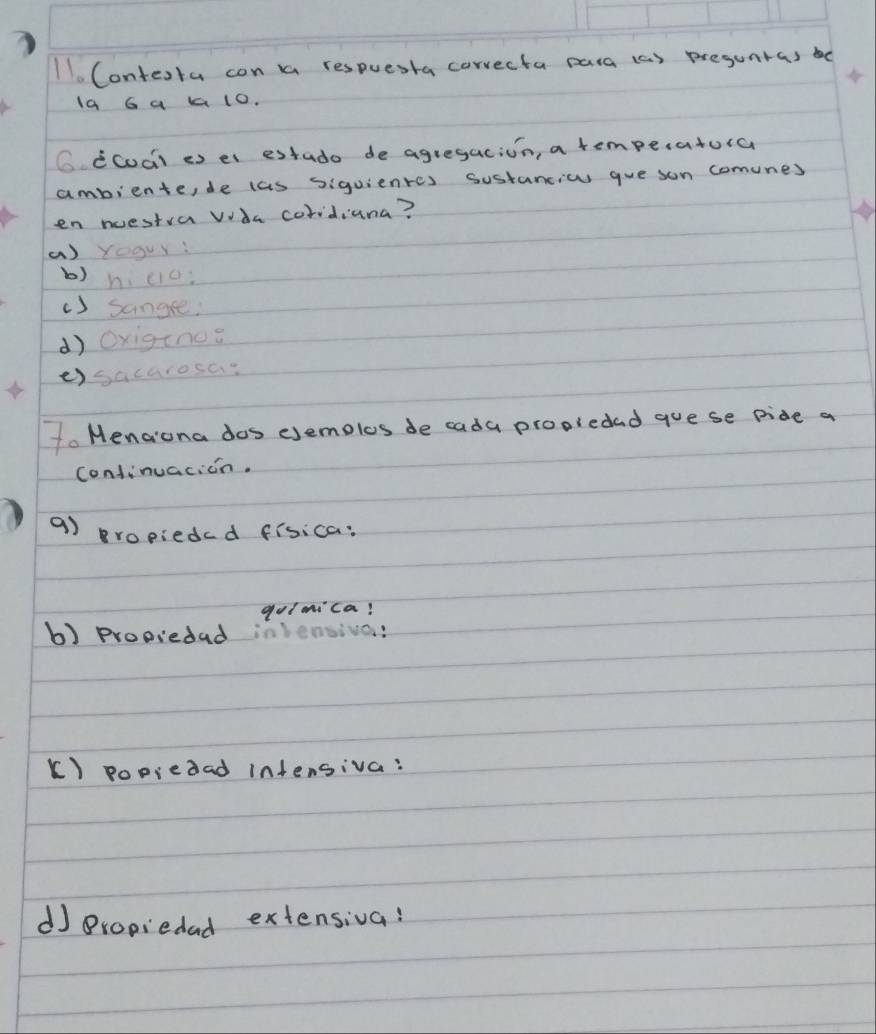 11. Contesta con la respuesta correcta para las preguntas de
la 6 a la 10.
6. ¿Cuál es el estado de agregación, a temperatura
ambiente, de las siguientes sustancias que son comunes
en nuestra vida cotidiana?
a) Yogur:
b) hielo:
c) Sangre:
d) Oxigeno:
e) sacarosa:
7. Menciona dos ejemplos de cada propiedad que se pide a
continuación.
a) propiedad física:
química:
b) Propiedad intensiva:
c) Popiedad intensiva:
d) Propiedad extensiva: